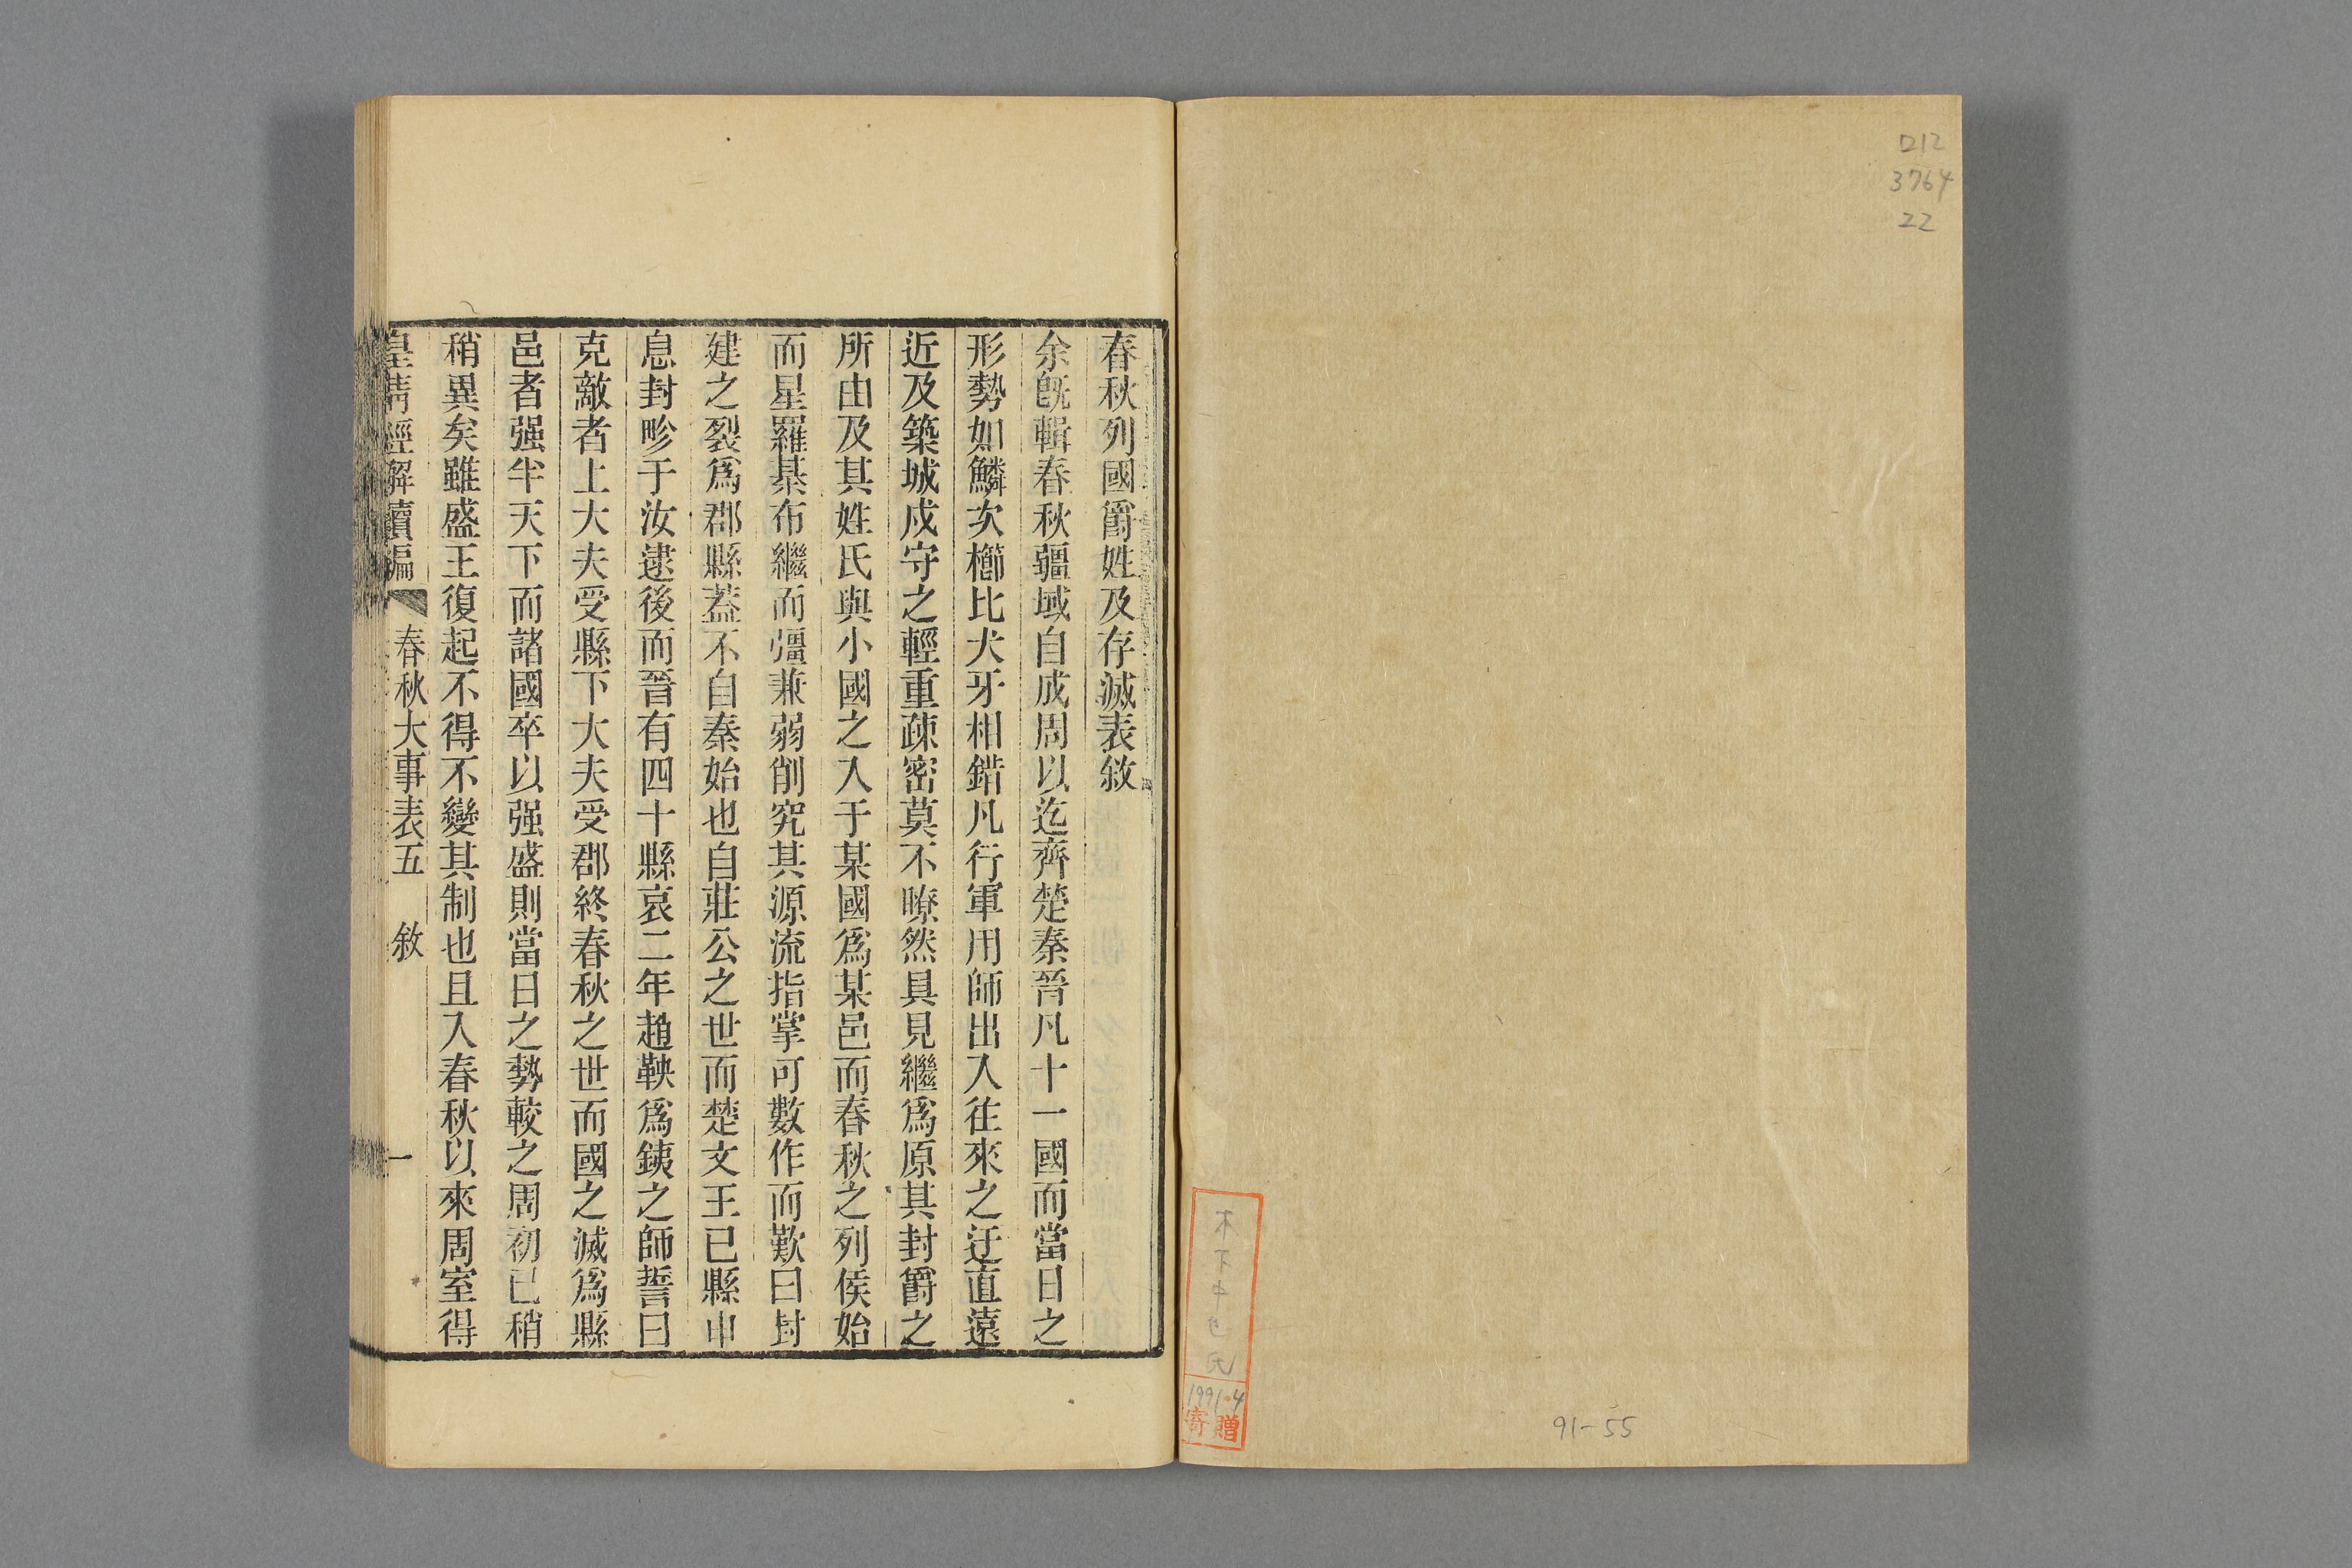 212
3764
22
木下中也氏
1991.4
寄贈
91-55
春秋列國爵姓及存滅表敘
余旣輯春秋疆域自成周以迄齊楚秦晉凡十一國而當日之
形勢如鱗次櫛比犬牙相錯凡行軍用師出入往來之迂直遠
近及築城戍守之輕重疎密莫不暸然具見繼爲原其封爵之
所由及其姓氏與小國之入于某國爲某邑而春秋之列侯始
而星羅棊布繼而彊兼弱削究其源流指掌可數作而歎曰封
建之裂爲郡縣蓋不自秦始也自莊公之世而楚文王已縣申
息封畛于汝逮後而晉有四十縣哀二年趙鞅爲鐵之師誓曰
克敵者上大夫受縣下大夫受郡終春秋之世而國之滅爲縣
邑者强半天下而諸國卒以强盛則當日之勢較之周初已稍
稍異矣雖盛王復起不得不變其制也且入春秋以來周室得
皇清經解續編 春秋大事表五 敘 一